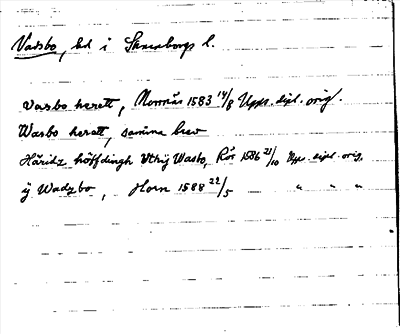 Vadsbo, hd i Skaraborgs l.
Vasbo herett, Mommås 1583 14/8 Upps. dipl. orig.
Wasbo herett, samma brev
Häritz höffdingh Uthij Wasbo, Rör 1586 21/10 Upps. dipl. orig.
ij Wadzbo, Horn 1588 22/5 " " "